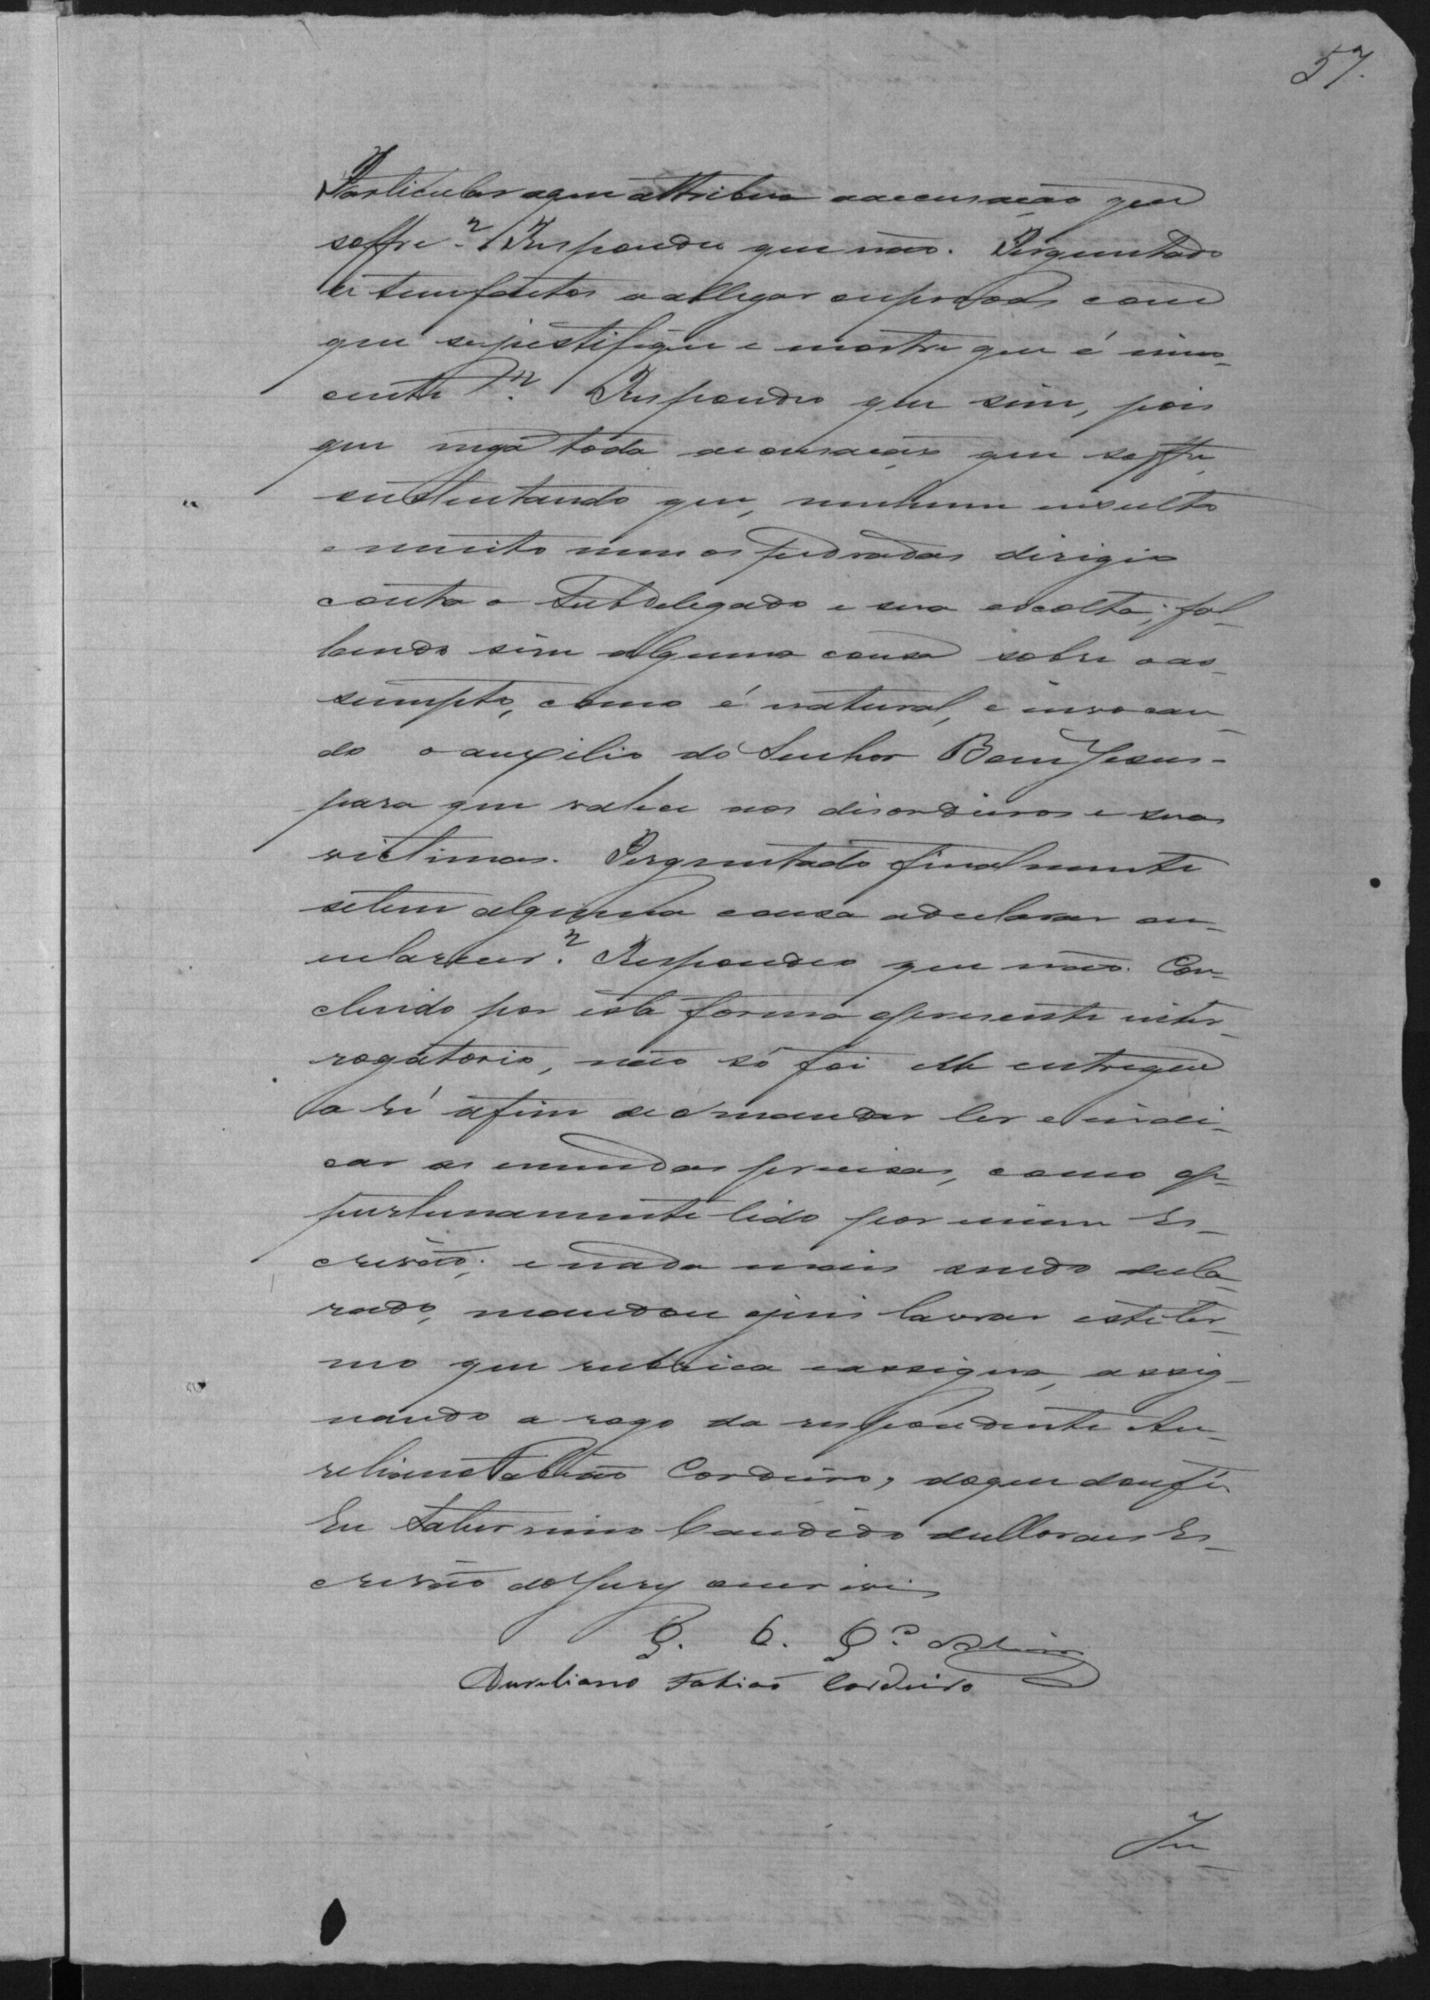 57.
Particular a quem attribua a accusação que
soffre? Respondeu que não. Perguntado
se tem factos a allegar ou provas com
que se justifique e mostre que é inno-
cente? Respondeu que sim, pois
que nega toda accusação que soffre,
sustentando que, nenhum insulto
e muito menos pedradas dirigio
contra o Subdelegado e sua escolta; fal-
lando sim alguma cousa sobre o as-
sumpto, como é natural, e invocan-
do o auxilio do Senhor Bom Jesus-
para que valesse aos desordeiros e suas
victimas. Perguntado finalmente
se tem alguma cousa a declarar ou
esclarecer? Respondeu que não. Con-
cluido por esta forma o presente inter-
rogatorio, não só foi elle entregue
a ré afim de o mandar ler e indi-
car as emendas precisas, como op-
portunamente lido por mim Es-
crivão; e nada mais sendo decla-
rado, mandou o juiz lavrar este ter-
mo que rubrica e assigna, assig-
nando a rogo da respondente Au-
reliano Fabião Cordeiro, do que dou fé.
Eu Saturnino Candido de Moraes Es-
crivão do Jury o escrevi
Aureliano Fabião Cordeiro